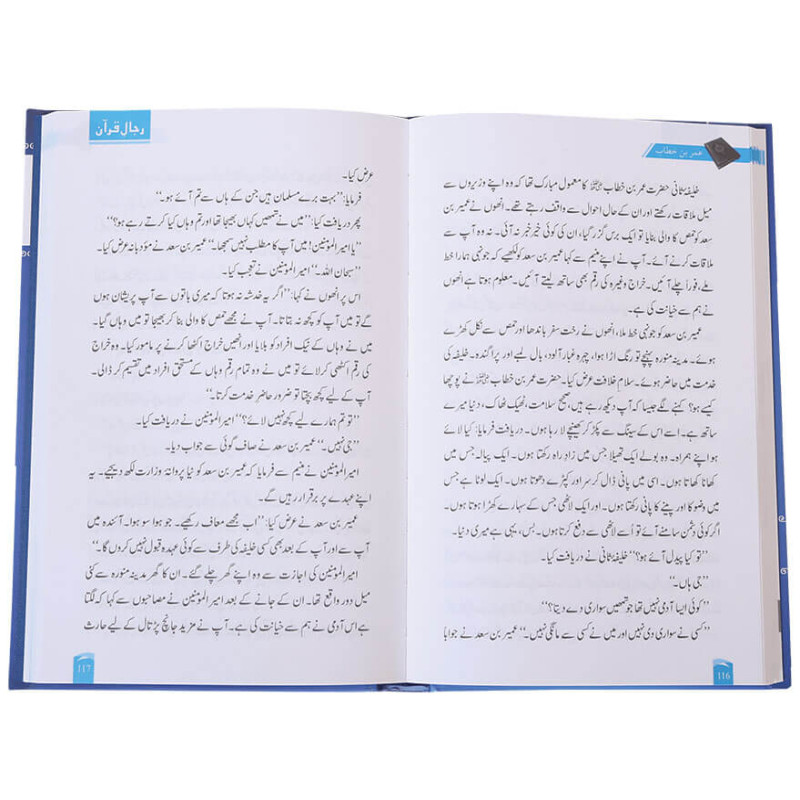 عمر بن خطاب
خلیفہ ثانی حضرت عمر بن خطاب ؓ کا معمول مبارک تھا کہ وہ اپنے وزیروں سے
میل ملاقات رکھتے اور ان کے حال احوال سے واقف رہتے تھے۔ انھوں نے عمیر بن
سعد کو حمص کا والی بنایا تو ایک برس گزر گیا، ان کی کوئی خیر خبر نہ آئی۔ نہ وہ آپ سے
ملاقات کرنے آئے۔ آپ نے اپنے منیم سے کہا عمیر بن سعد کو لکھیے کہ جونہی ہمارا خط
ملے، فوراً چلے آئیں۔ خراج وغیرہ کی رقم بھی ساتھ لیتے آئیں۔ معلوم ہوتا ہے انھوں
نے ہم سے خیانت کی ہے۔
عمیر بن سعد کو جونہی خط ملا، انھوں نے رخت سفر باندھا اور حمص سے نکل کھڑے
ہوئے۔ مدینہ منورہ پہنچے تو رنگ اڑا ہوا، چہرہ غبار آلود، بال لمبے اور پراگندہ۔ خلیفہ کی
خدمت میں حاضر ہوئے۔ سلام خلافت عرض کیا۔ حضرت عمر بن خطاب ؓ نے پوچھا
کیسے ہو؟ کہنے لگے جیسا کہ آپ دیکھ رہے ہیں، صحیح سلامت، ٹھیک ٹھاک، دنیا میرے
ساتھ ہے۔ اسے اس کے سینگ سے پکڑ کر کھینچے لا رہا ہوں۔ دریافت فرمایا: کیا لائے
ہو اپنے ہمراہ۔ وہ بولے ایک تھیلا جس میں زاد راہ رکھتا ہوں۔ ایک پیالہ جس میں
کھانا کھاتا ہوں۔ اسی میں پانی ڈال کر سر اور کپڑے دھوتا ہوں۔ ایک لوٹا ہے جس
میں وضو کا اور پینے کا پانی رکھتا ہوں۔ اور ایک لاٹھی جس کے سہارے کھڑا ہوتا ہوں۔
اگر کوئی دشمن سامنے آئے تو اُسے لاٹھی سے دفع کرتا ہوں۔ بس، یہی ہے میری دنیا۔
’’تو کیا پیدل آئے ہو؟‘‘ خلیفہ ثانی نے دریافت کیا۔
’’جی ہاں۔‘‘
’’کوئی ایسا آدمی نہیں تھا جو تمھیں سواری دے دیتا؟‘‘
’’کسی نے سواری دی نہیں اور میں نے کسی سے مانگی نہیں۔‘‘ عمیر بن سعد نے جوابا
116
رجال قرآن
عرض کیا۔
فرمایا: ’’بہت برے مسلمان ہیں جن کے ہاں سے تم آئے ہو۔‘‘
پھر دریافت کیا: ’’میں نے تمھیں کہاں بھیجا تھا اور تم وہاں کیا کرتے رہے ہو؟‘‘
’’یا امیر المؤمنین! میں آپ کا مطلب نہیں سمجھا۔‘‘ عمیر بن سعد نے مؤدبانہ عرض کیا۔
’’سبحان اللہ۔‘‘ امیر المؤمنین نے تعجب کیا۔
اس پر انھوں نے کہا: ’’اگر یہ خدشہ نہ ہوتا کہ میری باتوں سے آپ پریشان ہوں
گے تو میں آپ کو کچھ نہ بتاتا۔ آپ نے مجھے حمص کا والی بنا کر بھیجا تو میں وہاں گیا۔
میں نے وہاں کے نیک افراد کو بلایا اور انھیں خراج اکٹھا کرنے پر مامور کیا۔ وہ خراج
کی رقم اکٹھی کر لائے تو میں نے وہ تمام رقم وہاں کے مستحق افراد میں تقسیم کر ڈالی۔
آپ کے لیے کچھ بچتا تو ضرور حاضر خدمت کرتا۔‘‘
’’تو تم ہمارے لیے کچھ نہیں لائے؟‘‘ امیر المؤمنین نے دریافت کیا۔
’’جی نہیں۔‘‘ عمیر بن سعد نے صاف گوئی سے جواب دیا۔
امیر المؤمنین نے منیم سے فرمایا کہ عمیر بن سعد کو نیا پروانہ وزارت لکھ دیجیے۔ یہ
اپنے عہدے پر برقرار رہیں گے۔
عمیر بن سعد نے عرض کیا: ’’اب مجھے معاف رکھیے۔ جو ہوا سو ہوا۔ آئندہ میں
آپ سے اور آپ کے بعد بھی کسی خلیفہ کی طرف سے کوئی عہدہ قبول نہیں کروں گا۔‘‘
امیر المؤمنین کی اجازت سے وہ اپنے گھر چلے گئے۔ ان کا گھر مدینہ منورہ سے کئی
میل دور واقع تھا۔ ان کے جانے کے بعد امیر المؤمنین نے مصاحبوں سے کہا کہ لگتا
ہے اس آدمی نے ہم سے خیانت کی ہے۔ آپ نے مزید جانچ پڑتال کے لیے حارث
117